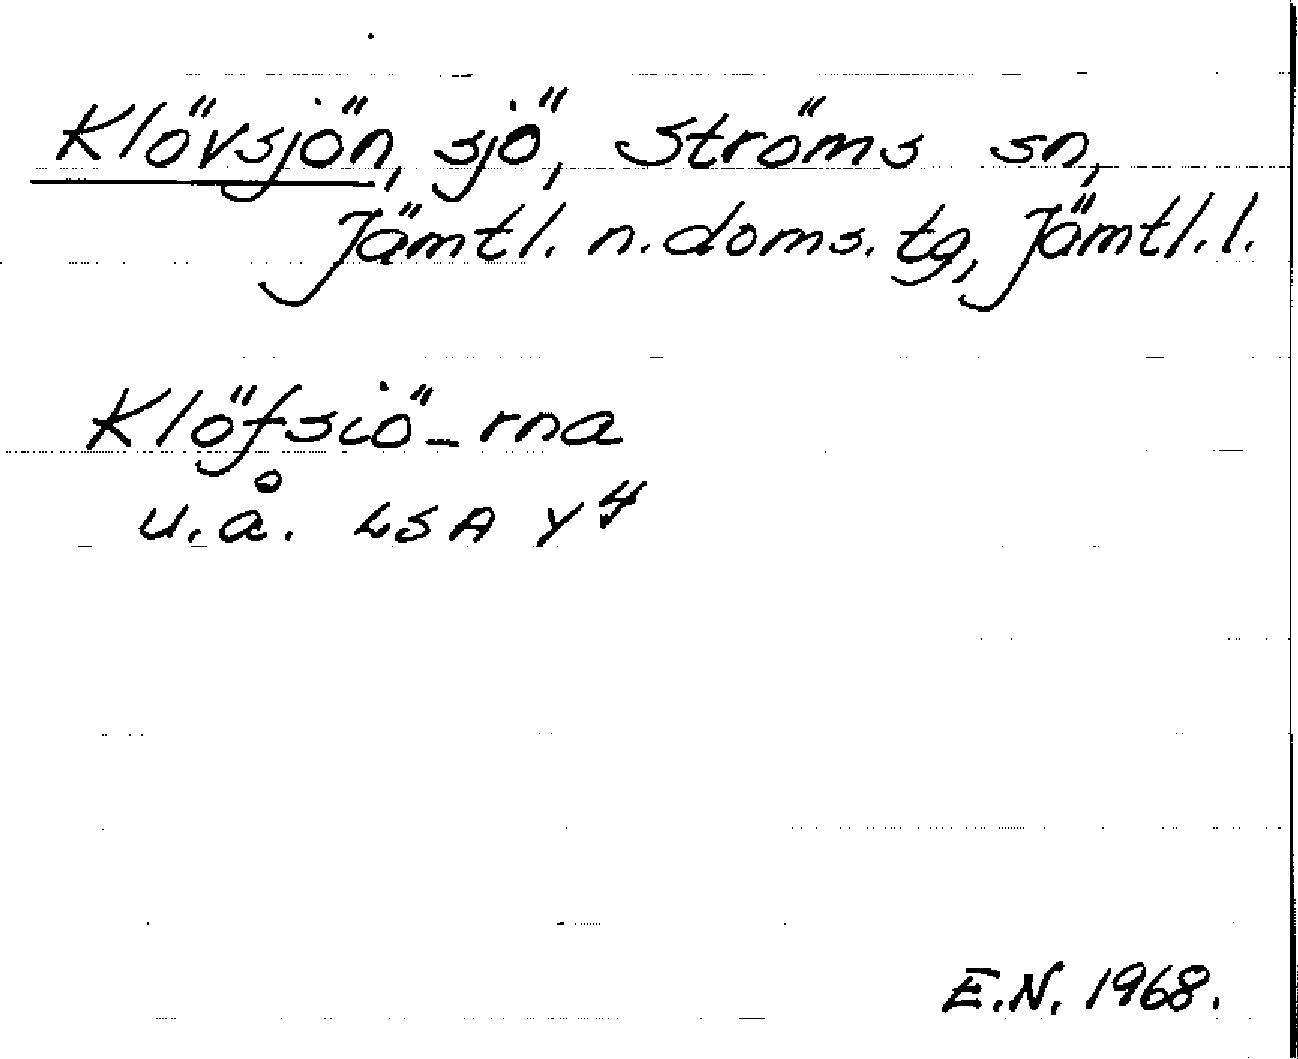 Klövsjön, sjö, Ströms sn,
Jämtl. n. doms. tg, Jämtl. l.
Klöfsiö-rna
u.å. LSA Y4
E.N. 1968.